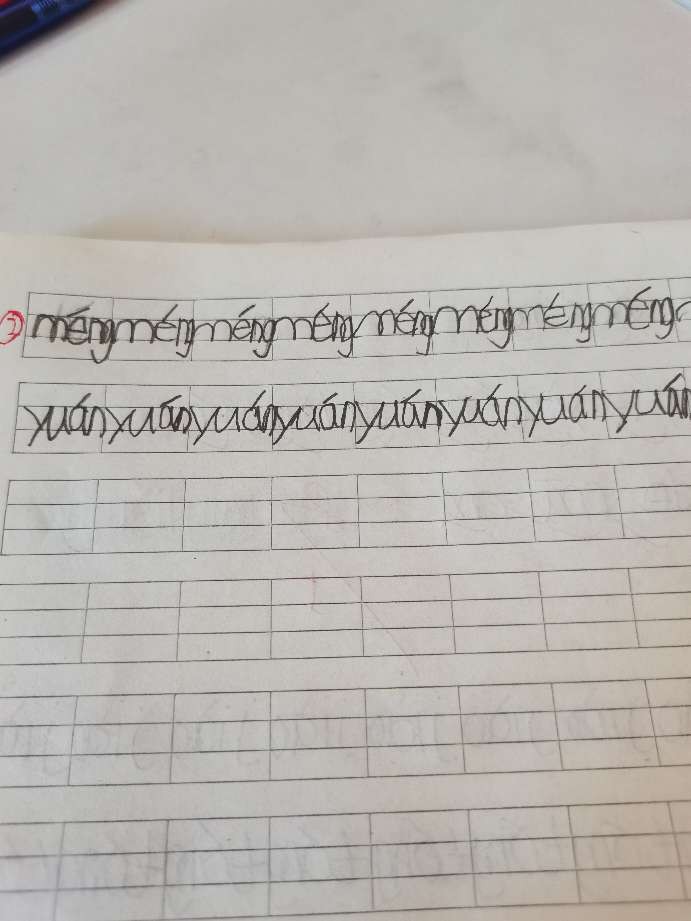 méng méng méng méng méng méng méng méng
yuán yuán yuán yuán yuán yuán yuán yuán